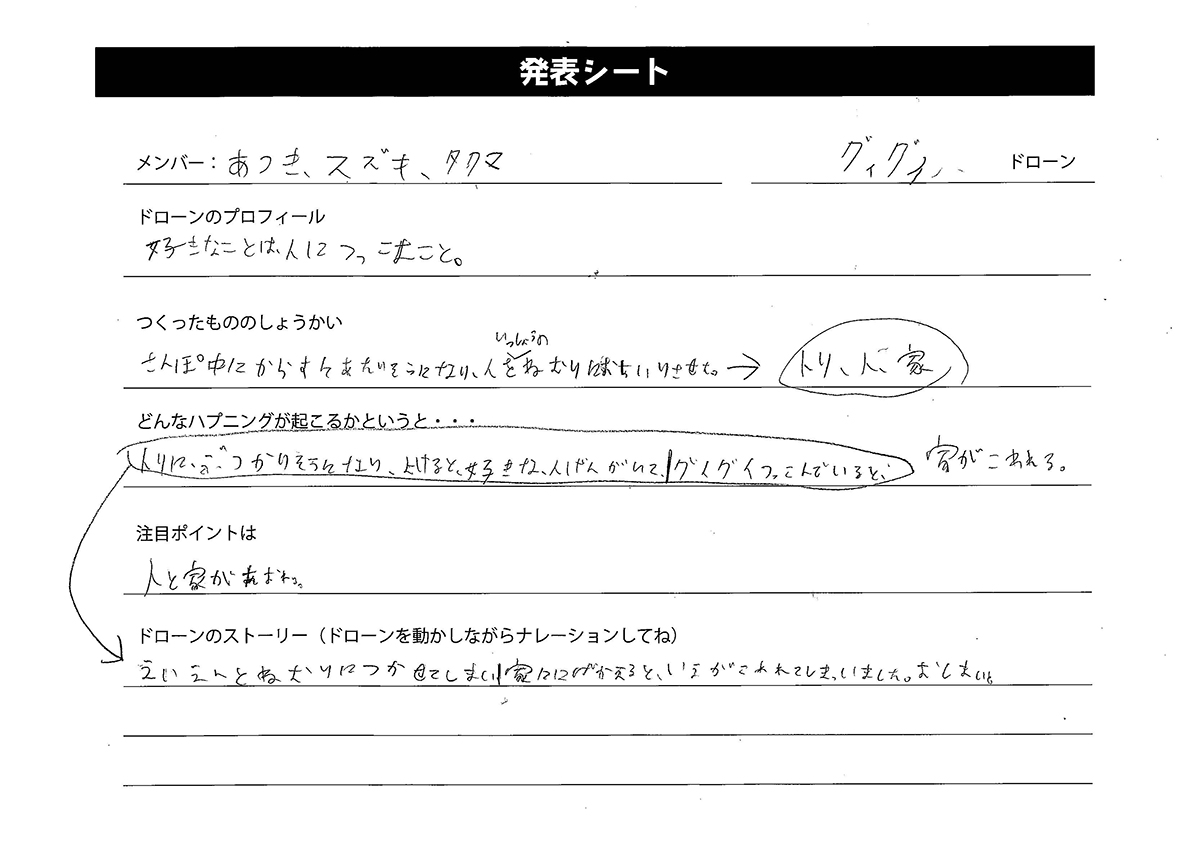 発表シート
メンバー：あつき、スズキ、タクマ
グイグイ ドローン
ドローンのプロフィール
好きなことは、人につっこむこと。
つくったもののしょうかい
いっしょうの
さんぽ中にからすと になり、人をねむり いりさせた。→ トリ、人、家
どんなハプニングが起こるかというと・・・
トリに、ぶつかりそうになり、よけると、好きな、人げんがいて、グイグイつっこんでいると、 家がこわれる。
注目ポイントは
人と家があばれる。
ドローンのストーリー（ドローンを動かしながらナレーションしてね）
えいえんとねむりにつかせてしまい家ににげかえると、いえがこわれてしまいました。おしまい。